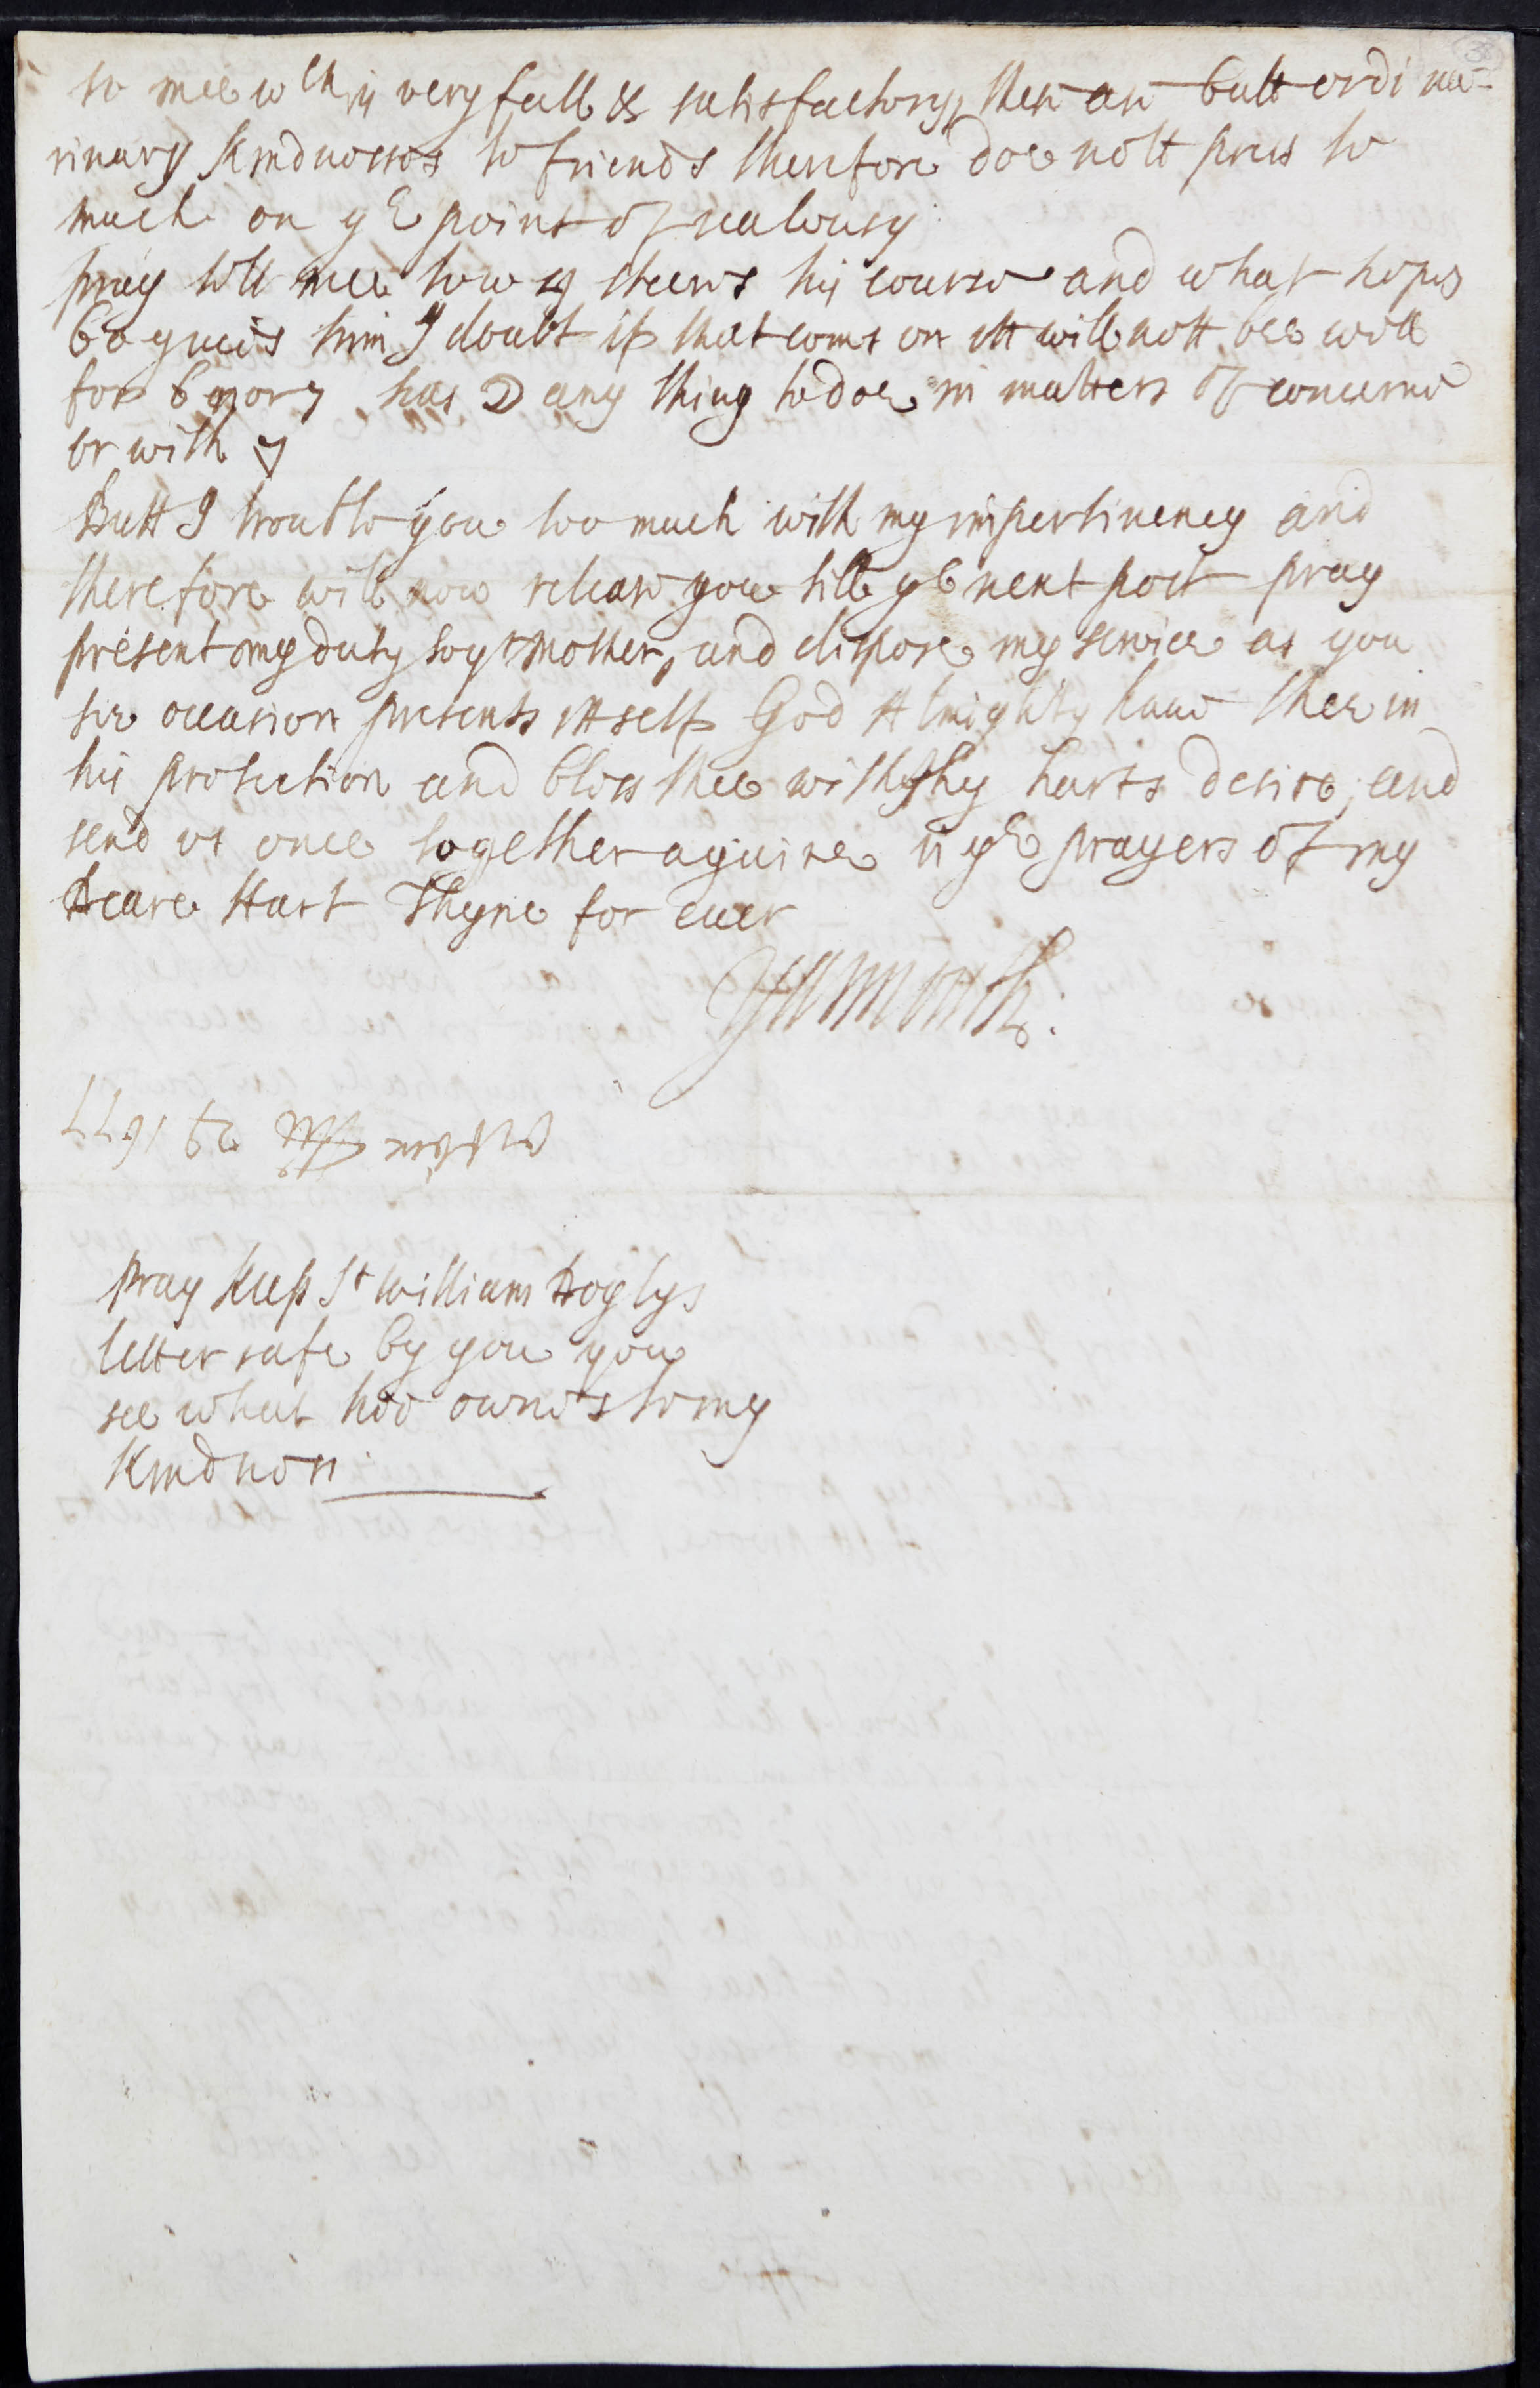 to mee wch is very full & satisfactory, ther ar butt ordi na-
rinary Kindnesses to friends therefore doe nott press to
much on ye point of realousy
pray tell mee how 4 steers his course and what hopes
6 giues him I doubt if that coms on itt will nott bee well
for 6 nor 7 has 2 any thing to doe in matters of concerne
or with 7
Butt I trouble you too much with my impertinency and
therefore will now releas you till ye next post pray
present my duty to yr mother, and dispose my service as you
see occasion presents ittself God Almighty haue thee in
his protection and bless thee with thy harts desire, and
send us once together againe is ye prayers of my
Deare Hart Thyne for euer
Yarmouth:
29 1677
pray keep Sr William Doylys
letter safe by you you
see what hee ownes to my
Kindness